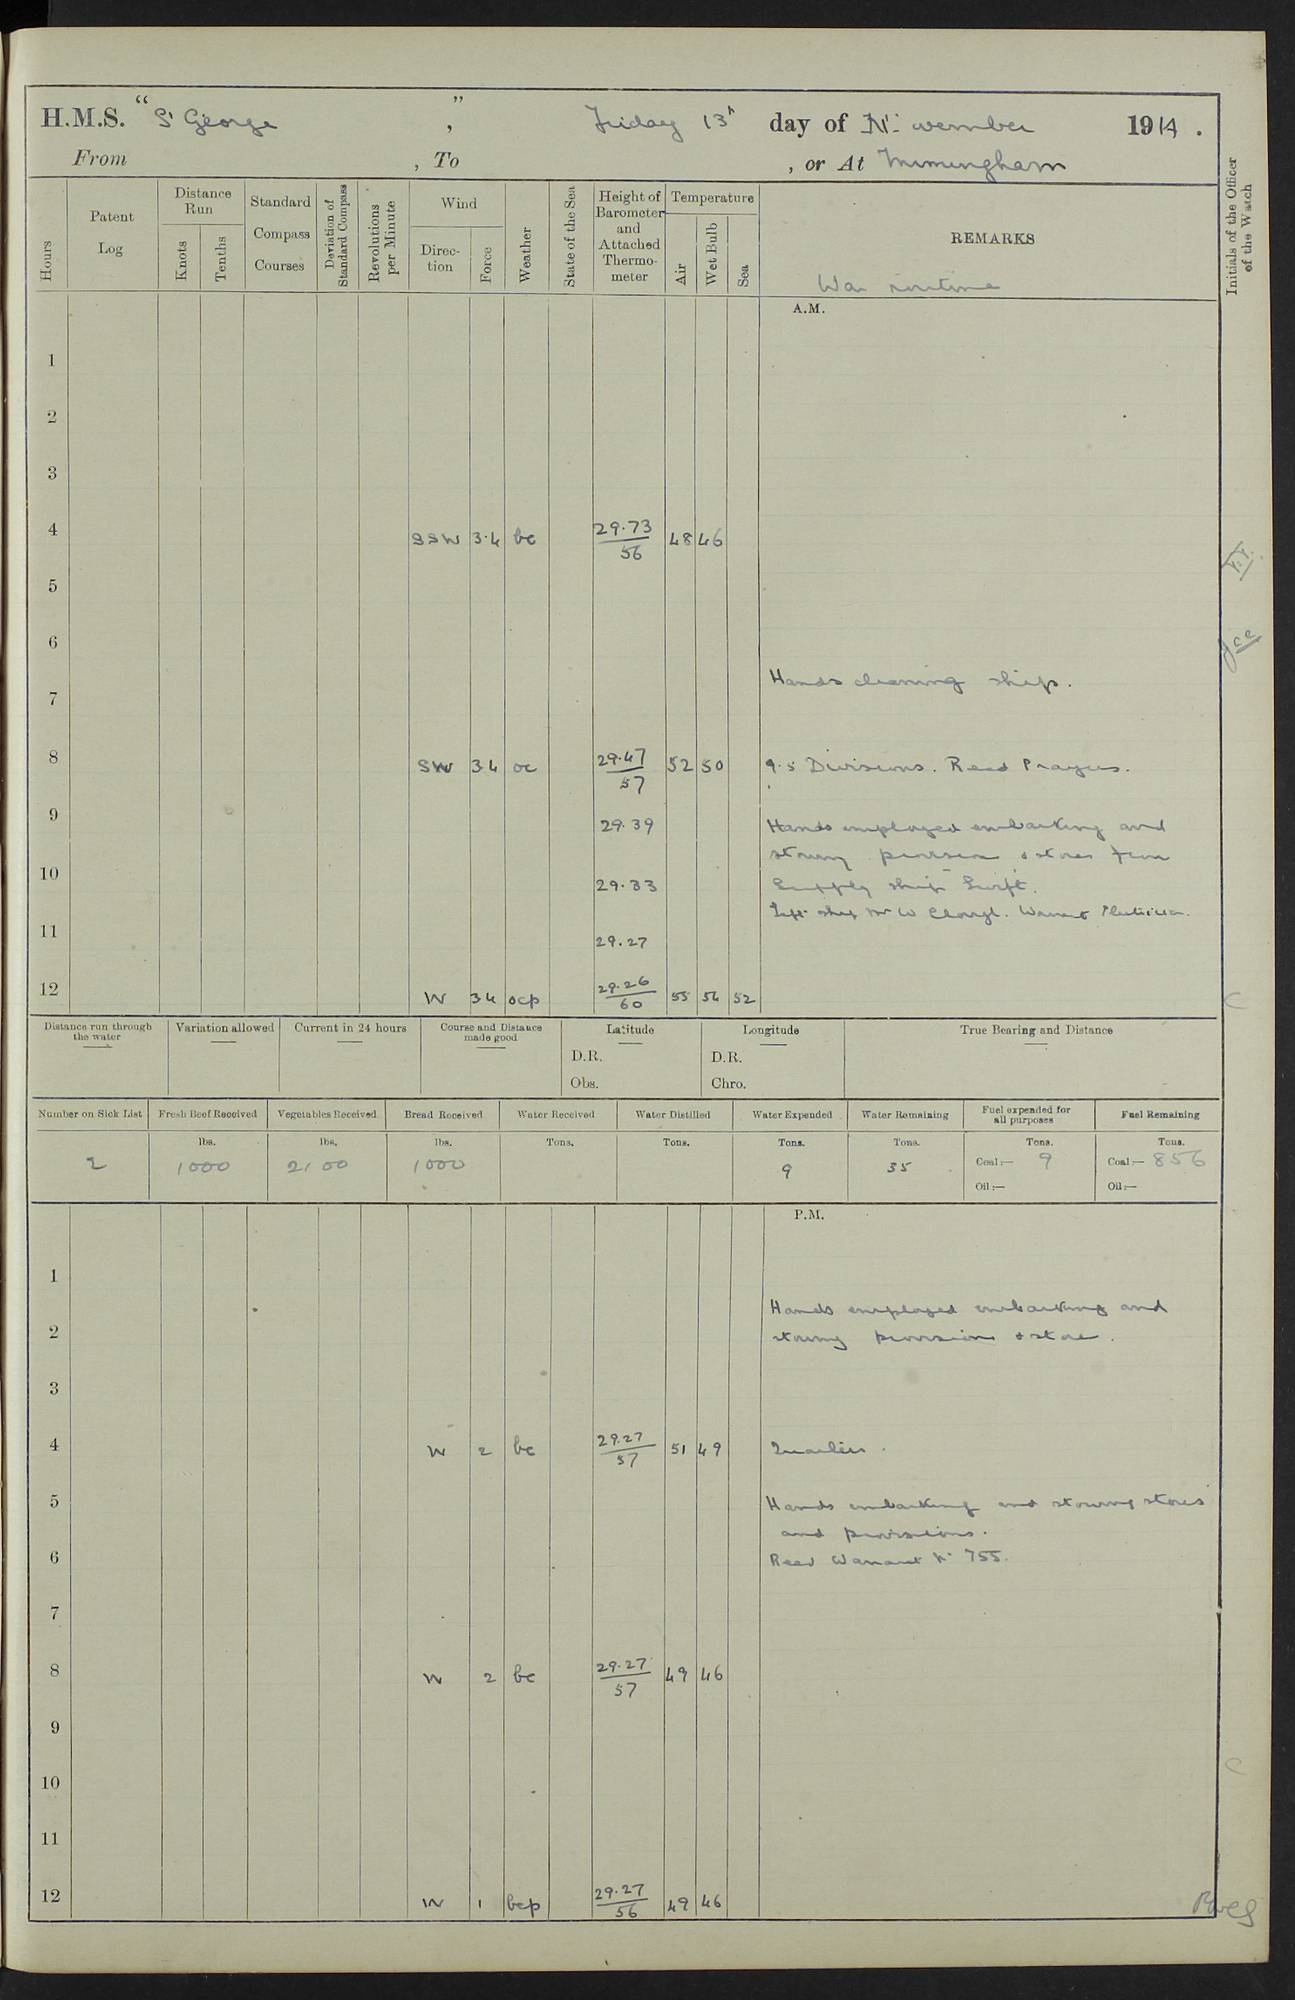 H.M.S. "St George", Friday 13th day of November 1914.
From , To , or At Immingham
Hours
Patent Log
Distance Run
Knots
Tenths
Standard Compass Courses
Deviation of Standard Compass
Revolutions per Minute
Wind
Direction
Force
Weather
State of the Sea
Height of Barometer and Attached Thermometer
Temperature
Air
Wet Bulb
Sea
REMARKS
Initials of the Officer of the Watch
War routine
A.M.
1
2
3
4 SSW 3.4 bc 29.73/56 48 46
5
6
Hands cleaning ship.
7
8 SW 34 oc 29.47/57 52 50 9.5 Divisions. Read Prayers.
9 29.39 Hands employed embarking and
stowing provision & stores from
10 29.33 Supply ship Swift.
Left ship Mr W Clough. Warrant
11 29.27
12 W 34 ocp 29.26/60 55 54 52
Distance run through the water
Variation allowed
Current in 24 hours
Course and Distance made good
Latitude
D.R.
Obs.
Longitude
D.R.
Chro.
True Bearing and Distance
Number on Sick List
Fresh Beef Received
Vegetables Received
Bread Received
Water Received
Water Distilled
Water Expended
Water Remaining
Fuel expended for all purposes
Fuel Remaining
lbs. lbs. lbs. Tons. Tons. Tons. Tons. Tons. Tons.
2 1000 2100 1000 9 35 Coal:— 9 Coal:— 856
Oil:— Oil:—
P.M.
1
Hands employed embarking and
2 stowing provision & store.
3
4 W 2 bc 29.27/57 51 49 Quarters.
5 Hands embarking and stowing stores
and provisions.
6 Read Warrant No 755.
7
8 W 2 bc 29.27/57 49 46
9
10
11
12 W 1 bcp 29.27/56 49 46